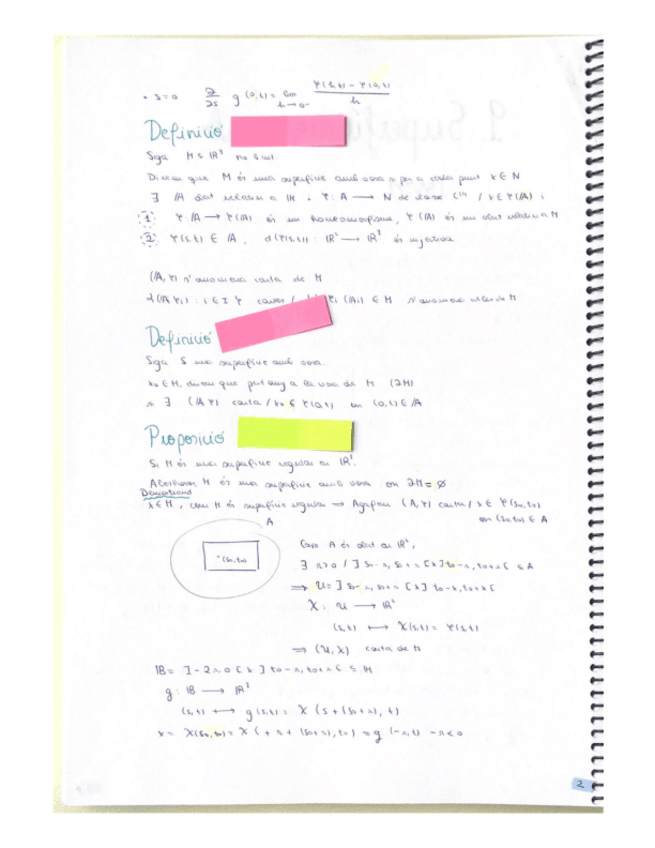 • s=0 ∂/∂s g(0,t) = lim h→0⁻ φ(h,t) − φ(0,t) / h
Definició
Siga M ⊆ ℝ³ no buit.
Direm que M és una superfície amb vora si per a cada punt x ∈ M
∃ A obert relatiu a ℍ i φ: A → M de classe / x ∈ φ(A) i
1 φ: A → φ(A) és un homeomorfisme, φ(A) és un obert relatiu a M
2 φ(s,t) ∈ A, d φ(s,t): ℝ² → ℝ³ és injectiva
(A, φ) s'anomena carta de M
(Ai) ∈ M s'anomena atles de M
Definició
Siga S una superfície amb vora.
x₀ ∈ M, direm que pertany a la vora de M (∂M)
si ∃ (A, φ) carta / x₀ ∈ φ(0,t) on (0,t) ∈ A
Proposició
Si M és una superfície regular en ℝ³.
Aleshores, M és una superfície amb vora on ∂M = ∅
Demostració
x ∈ M, com M és superfície regular ⟹ Agafem (A, φ) carta / x ∈ φ(s₀,t₀)
on (s₀,t₀) ∈ A
A
•(s₀,t₀)
Com A és obert en ℝ²,
∃ r>0 / ]s₀−r, s₀+r[ × ]t₀−r, t₀+r[ ⊆ A
⟹ U = ]s₀−r, s₀+r[ × ]t₀−r, t₀+r[
X: U → ℝ³
(s,t) ⟼ X(s,t) = φ(s,t)
⟹ (U, X) carta de M
𝔹 = ]−2r, 0[ × ]t₀−r, t₀+r[ ⊆ ℍ
g: 𝔹 → ℝ³
(s,t) ⟼ g(s,t) = X(s+(s₀+r), t)
x = X(s₀,t₀) = X(+r+(s₀+r), t₀) = g(−r,t) −r<0
2